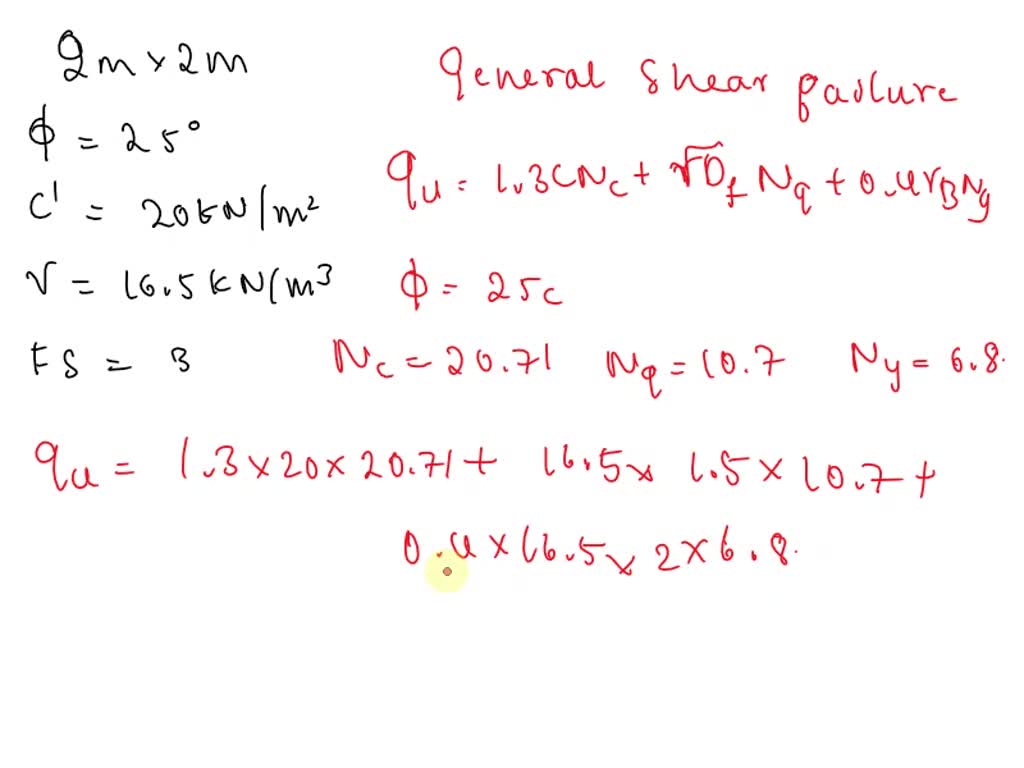 2m × 2m
ϕ = 25°
C' = 20 kN/m²
γ = 16.5 kN/m³
FS = 3
general shear failure
qu = 1.3CNc + γDf Nq + 0.4γBNy
ϕ = 25c
Nc = 20.71 Nq = 10.7 Ny = 6.8.
qu = 1.3 × 20 × 20.71 + 16.5 × 1.5 × 10.7 +
0.4 × 16.5 × 2 × 6.8.